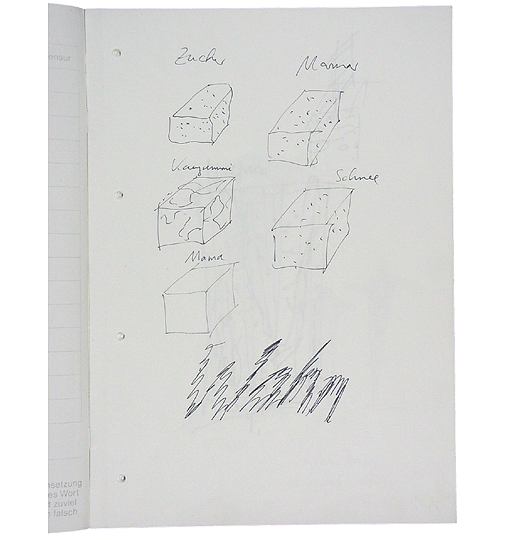 ensur
Zucker
Marmor
Kaugummi
Schnee
Mama
nsetzung
es Wort
t zuviel
n falsch